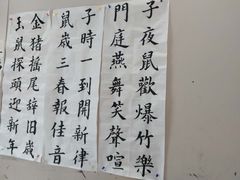 子夜鼠歡爆竹樂
門庭燕舞笑聲喧
子時一到開新律
鼠歲三春報佳音
金猪摇尾辞旧歲
玉鼠探頭迎新年